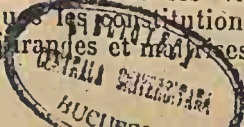 les constitution
urandes et maîtrises
CENTRALA UNIVERSITARA
BUCURE